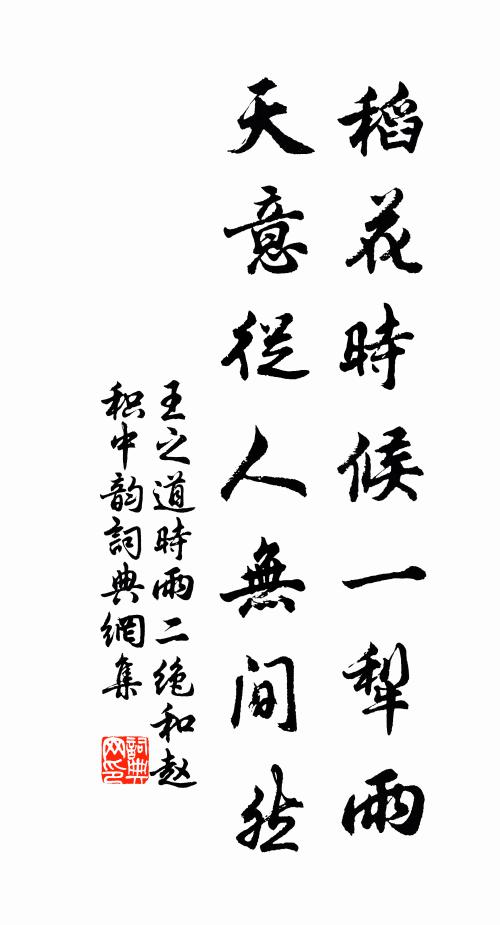 稻花時候一犁雨
天意從人無間然
王之道時雨二绝和赵
积中韵詞典網集
詞典网印